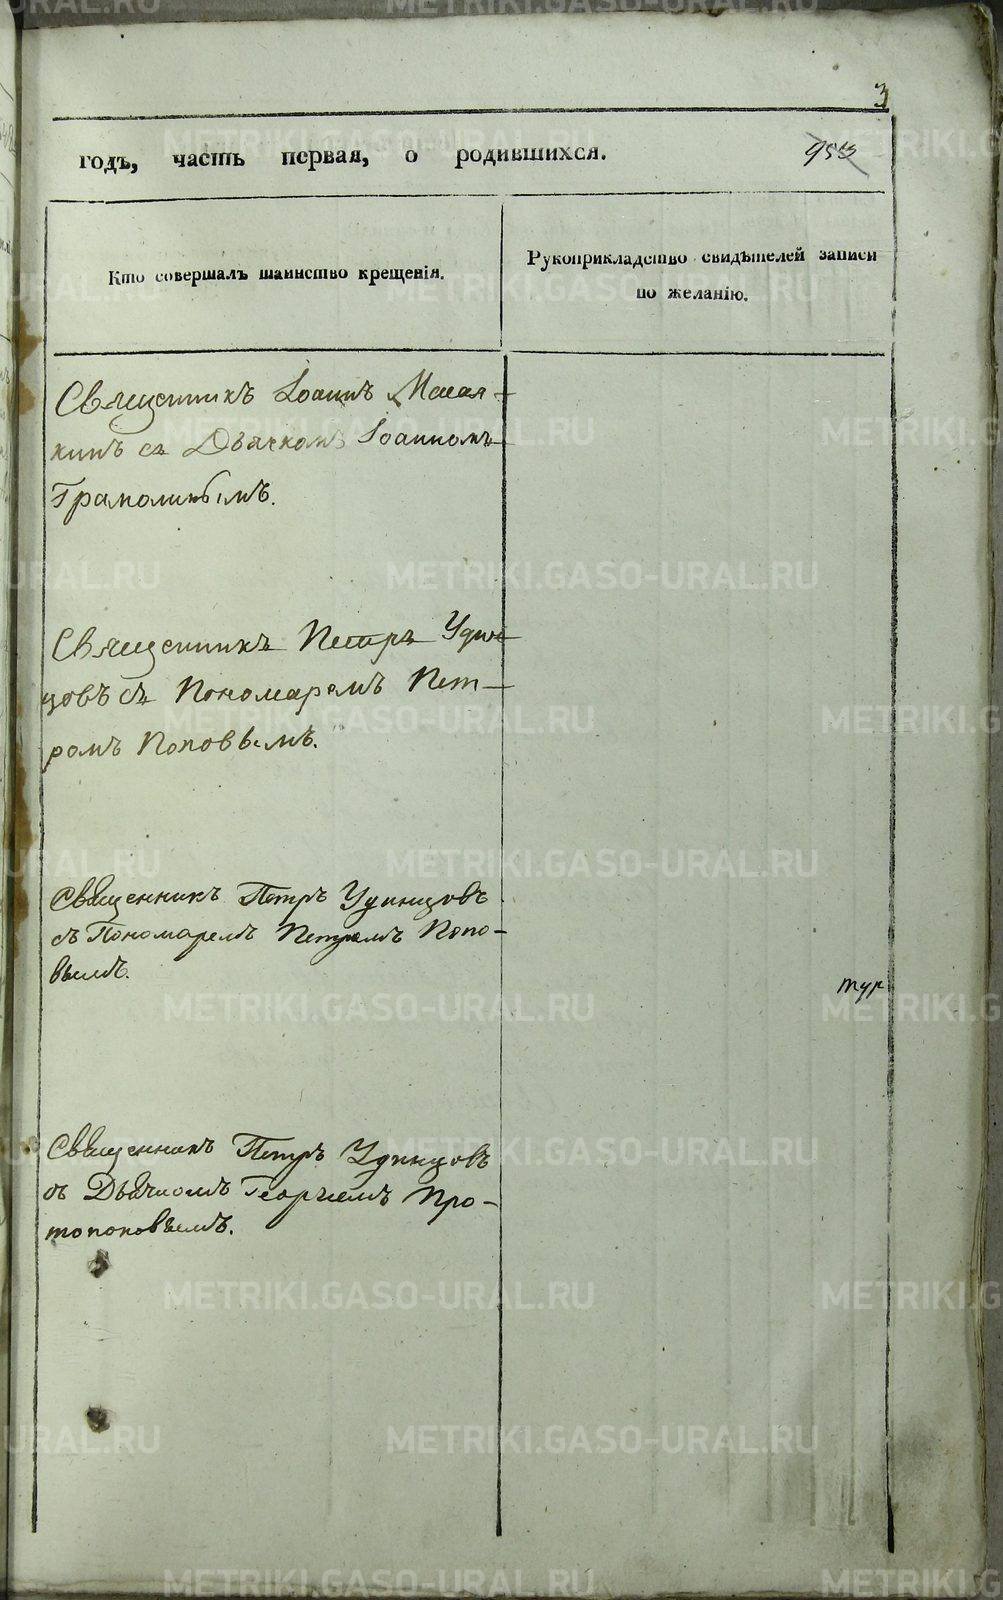 3
годъ, часть первая, о родившихся.
Кто совершалъ таинство крещенія.
Рукоприкладство свидѣтелей записи
по желанію.
Священникъ Іоаннъ
съ Дьячкомъ Іоанномъ
Грамолинымъ.
Священникъ Петръ Удин-
цовъ съ Пономаремъ Пет-
ромъ Поповымъ.
Священникъ Петръ Удинцовъ
съ Пономаремъ Петромъ Попо-
вымъ.
Священникъ Петръ Удинцовъ
съ Дьячкомъ Георгіемъ Про-
топоповымъ.
METRIKI.GASO-URAL.RU